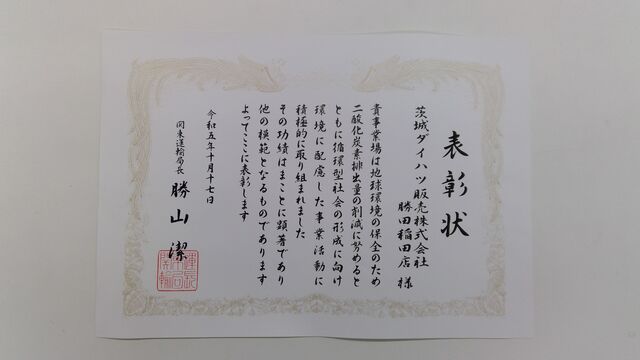 表彰状
茨城ダイハツ販売株式会社
勝田稲田店 様
貴事業場は地球環境の保全のため
二酸化炭素排出量の削減に努めると
ともに循環型社会の形成に向け
環境に配慮した事業活動に
積極的に取り組まれました
その功績はまことに顕著であり
他の模範となるものであります
よってここに表彰します
令和五年十月十七日
関東運輸局長 勝山 潔